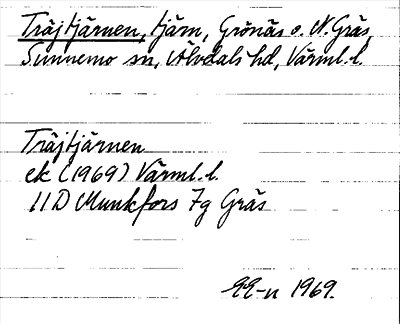 Träjtjärnen, tjärn, Grönäs o. N. Gräs,
Sunnemo sn, Älvdals hd, Värml. l.
Träjtjärnen
ek (1969) Värml. l.
11D Munkfors 7g Gräs
1969.